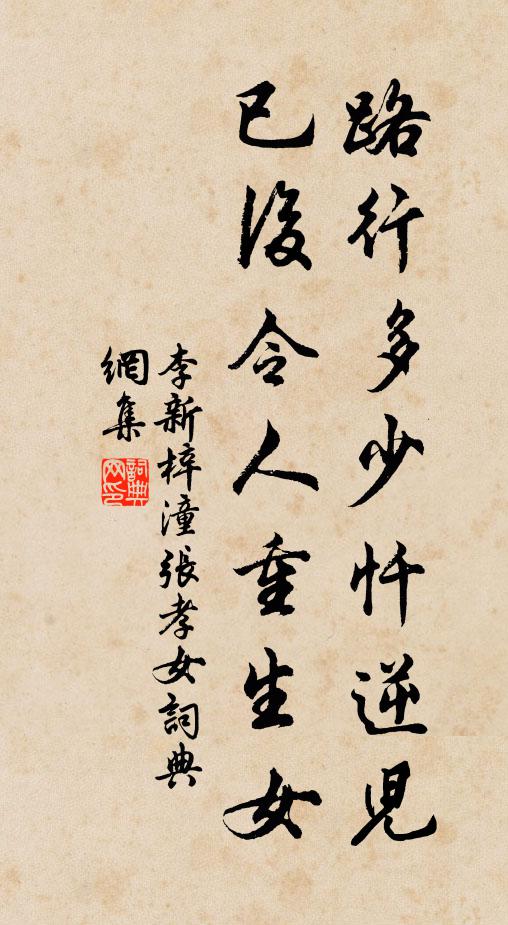 路行多少忤逆兒
已後令人重生女
李新梓潼張孝女詞典
網集
詞典
网印